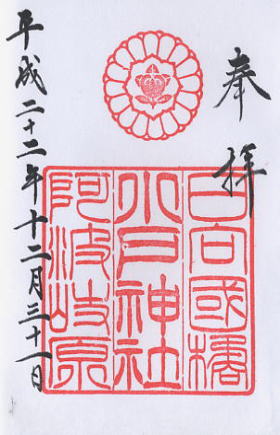 奉拝
日向國橘
小戸神社
阿波岐原
平成二十二年十二月三十一日